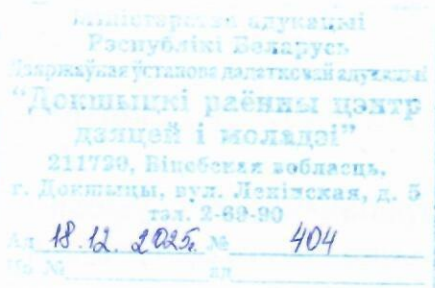 Міністэрства адукацыі
Рэспублікі Беларусь
Дзяржаўная ўстанова дадатковай адукацыі
“Докшыцкі раённы цэнтр
дзяцей і моладзі”
211720, Віцебская вобласць,
г. Докшыцы, вул. Ленінская, д. 5
тэл. 2-69-90
Ад 18.12.2025г. № 404
На № ад